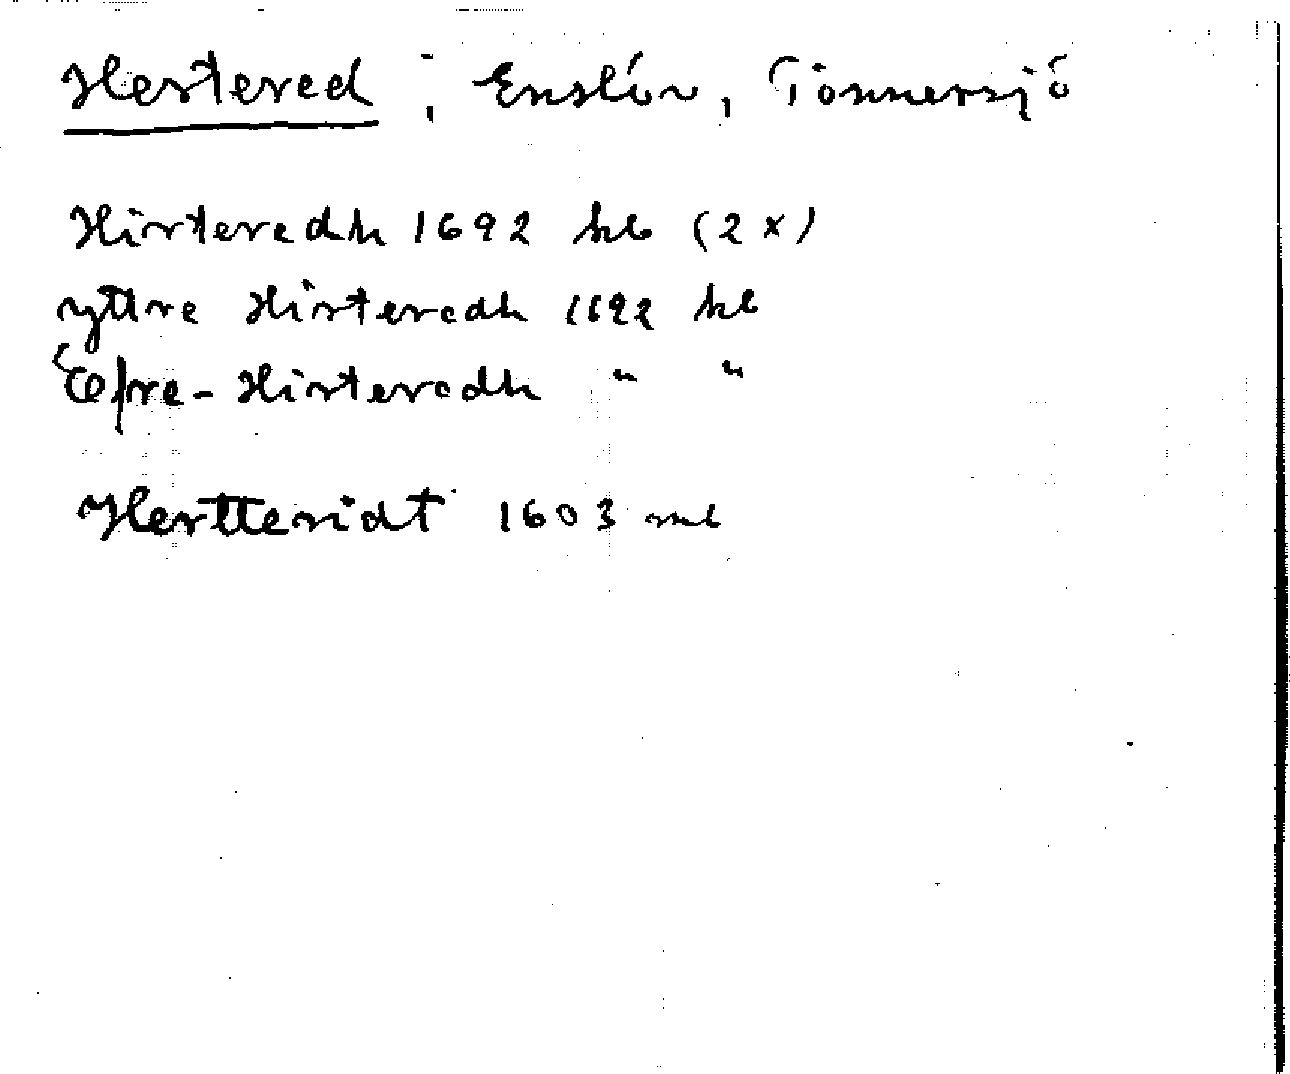 Hertered ; Enslöv, Tönnersjö
Hirteredh 1692 hb (2 x)
yttre Hirteredh 1692 hb
Ööfre-Hirteredh " "
Hertteridt 1603 mb